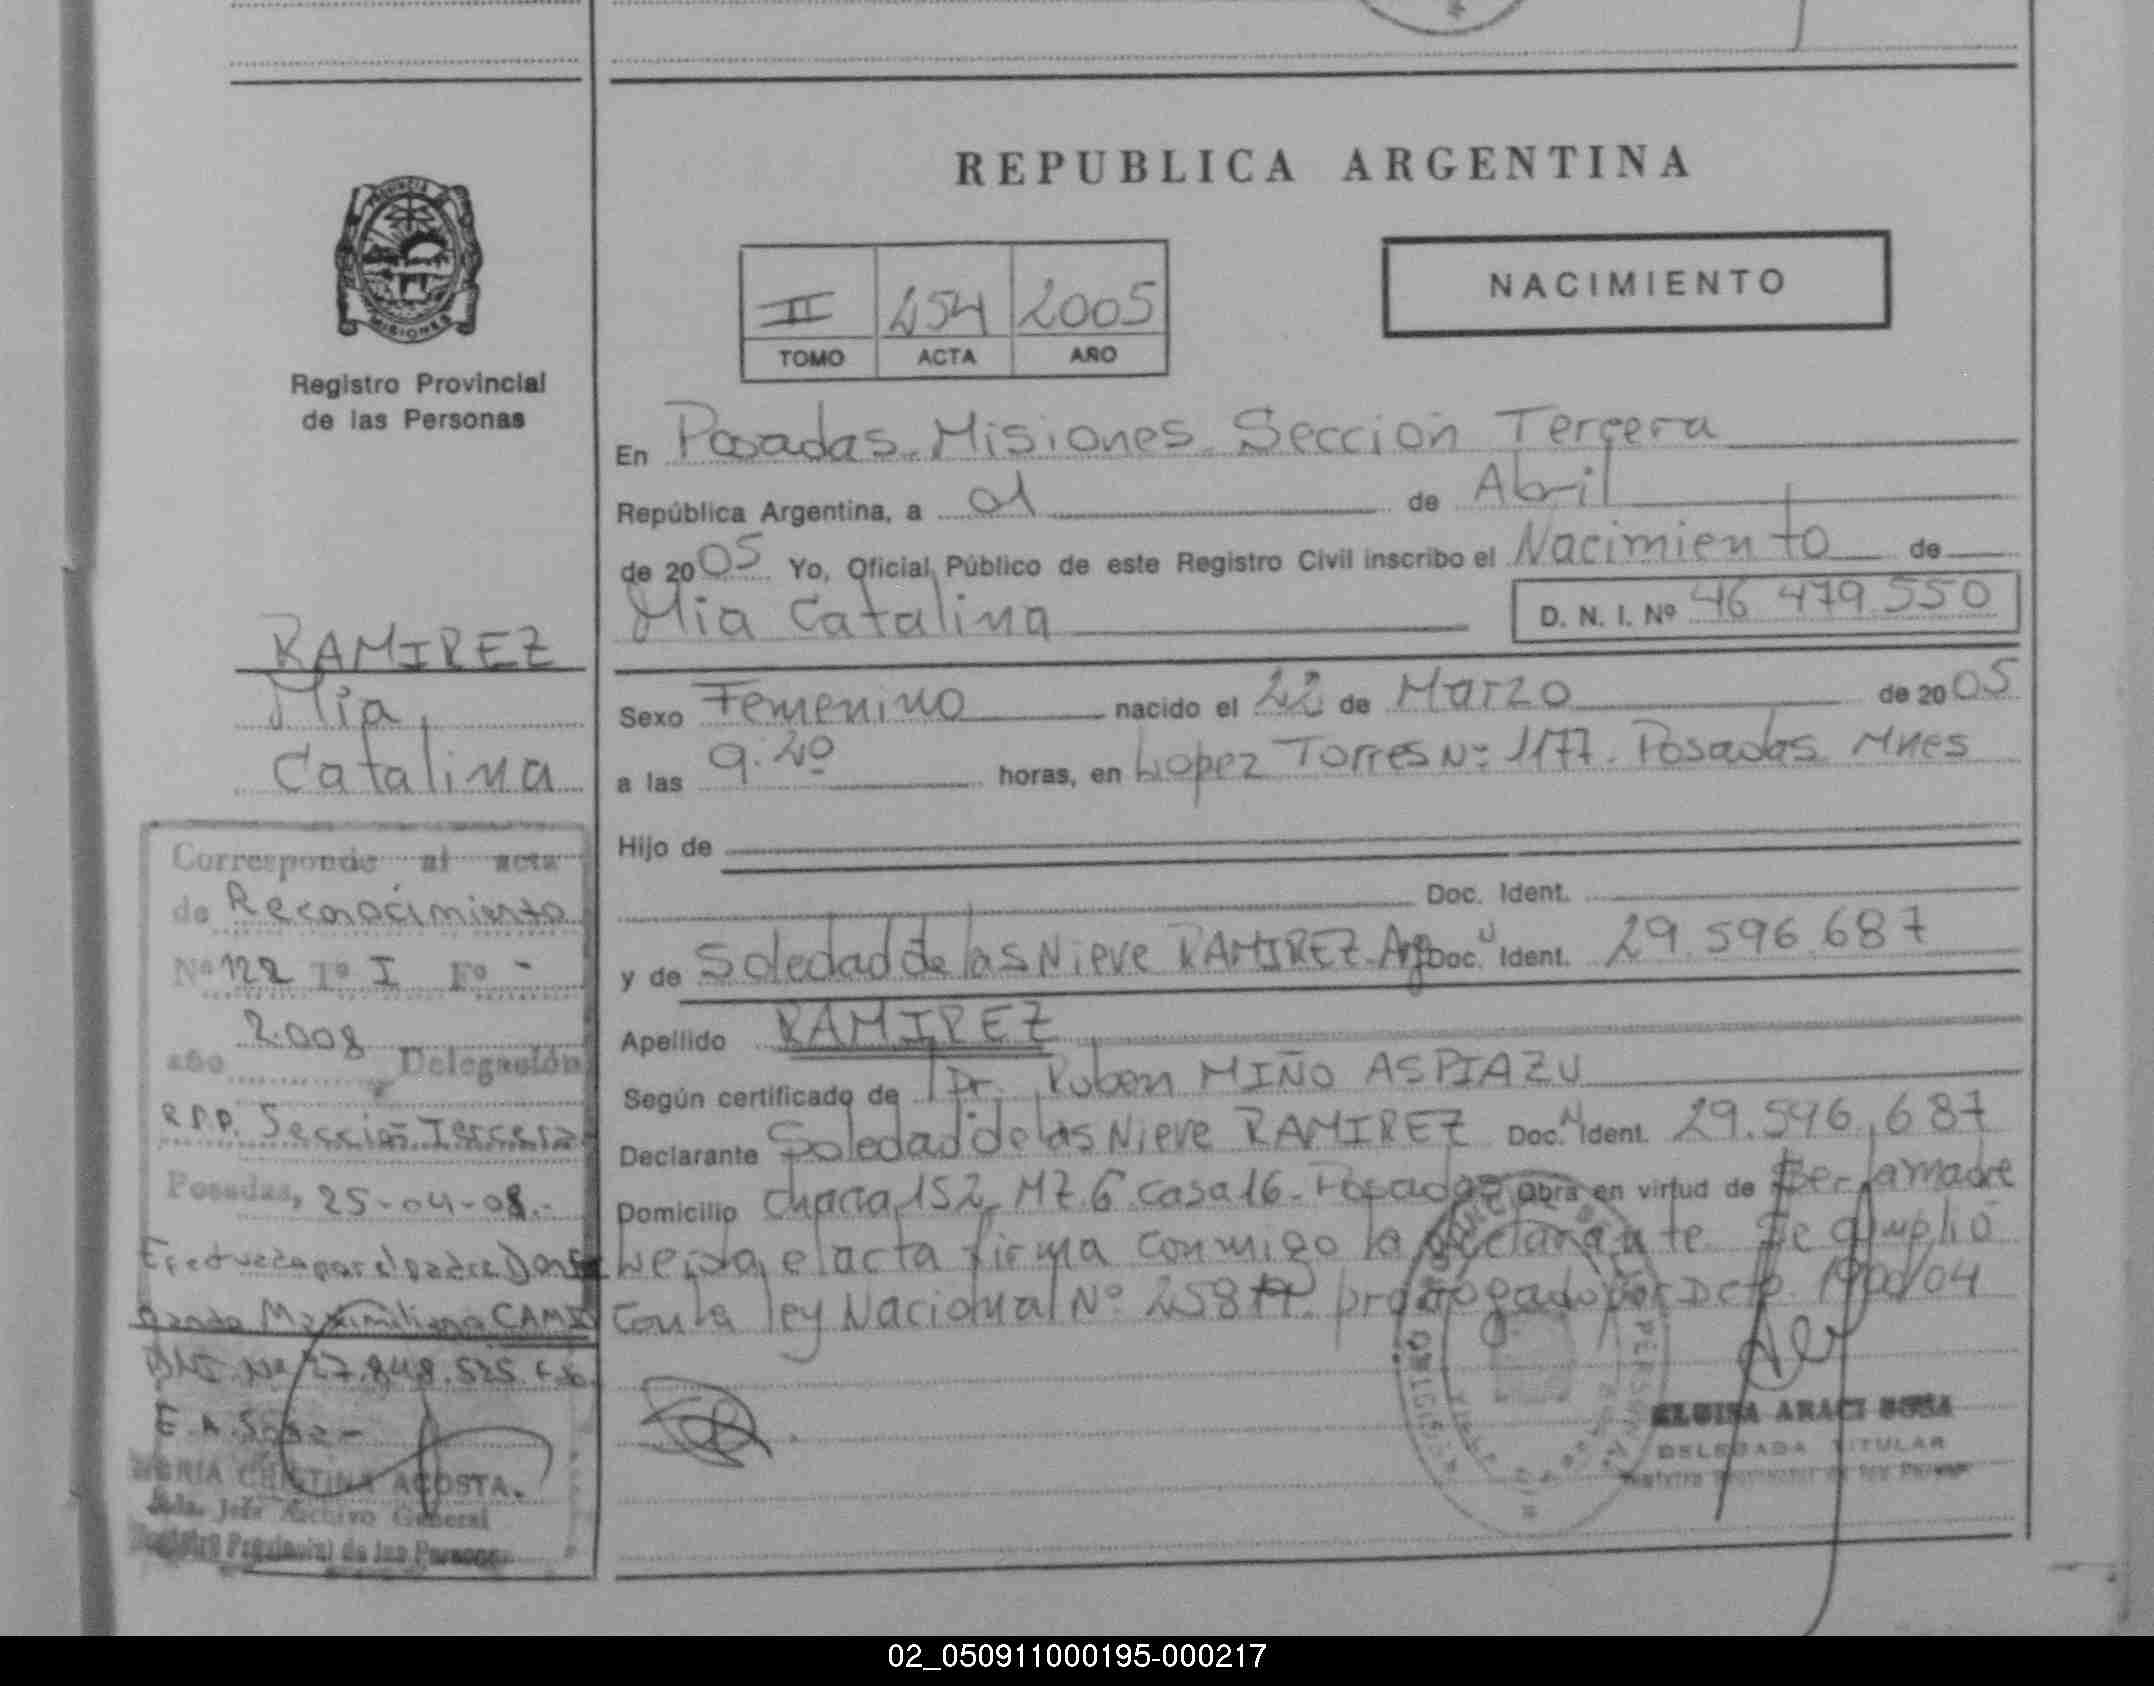 REPUBLICA ARGENTINA
NACIMIENTO
II 454 2005
TOMO ACTA AÑO
PROVINCIA
MISIONES
Registro Provincial
de las Personas
RAMIREZ
Mia
Catalina
Corresponde al acta
de Reconocimiento
Nº 122 Tº I Fº -
año 2.008 Delegación
R.P.P. Sección Tercera
Posadas, 25-04-08.-
Efectuada por el padre
Maximiliano
DNI. Nº 27.848.525
MARIA CRISTINA ACOSTA
Jefe Archivo General
Registro Provincial de las Personas
En Posadas. Misiones. Sección Tercera
República Argentina, a 01 de Abril
de 2005 Yo, Oficial Público de este Registro Civil inscribo el Nacimiento de
Mia Catalina D. N. I. Nº 46 479.550
Sexo Femenino nacido el 22 de Marzo de 2005
a las 9.20 horas, en Lopez Torres Nº 1177. Posadas Mnes
Hijo de
Doc. Ident.
y de Soledad de las Nieve RAMIREZ Arg Doc. Ident. 29.596.687
Apellido RAMIREZ
Según certificado de Dr. Ruben MIÑO ASPIAZU
Declarante Soledad de las Nieve RAMIREZ Doc. Ident. 29.596.687
Domicilio chacra 152 MZ 6 casa 16. Posadas Obra en virtud de ser la madre
Leida el acta firma conmigo la declarante Se cumplió
con la ley Nacional Nº prorrogado por Dcto. 1900/04
ELOISA ARACI SOSA
DELEGADA TITULAR
02_050911000195-000217